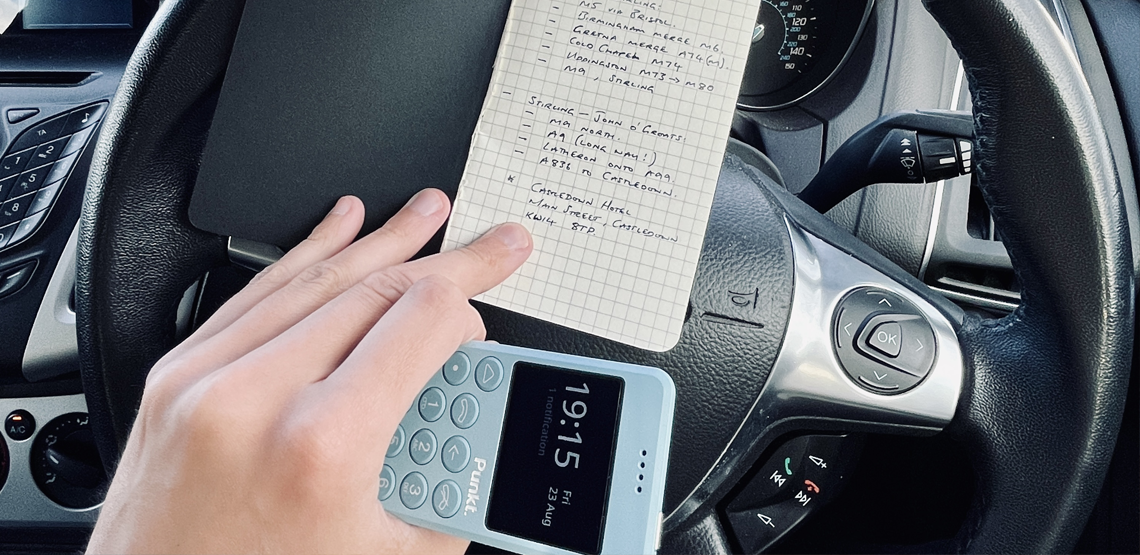 - M5 VIA BRISTOL.
- BIRMINGHAM MERGE M6.
- GRETNA MERGE A74(M).
- COLD CHAPEL M74
- UDDINGSTON M73 → M80
- M9, STIRLING
- STIRLING – JOHN O'GROATS:
- M9 NORTH.
- A9 (LONG WAY!)
- LATHERON ONTO A99.
- A836 TO CASTLEDOWN.
* CASTLEDOWN HOTEL
MAIN STREET, CASTLEDOWN
KW14 8TP.
19:15
Fri
23 Aug
1 notification
Punkt.
1
2
3
5
6
TA
A/C
OK
110
120
130
140
150
160